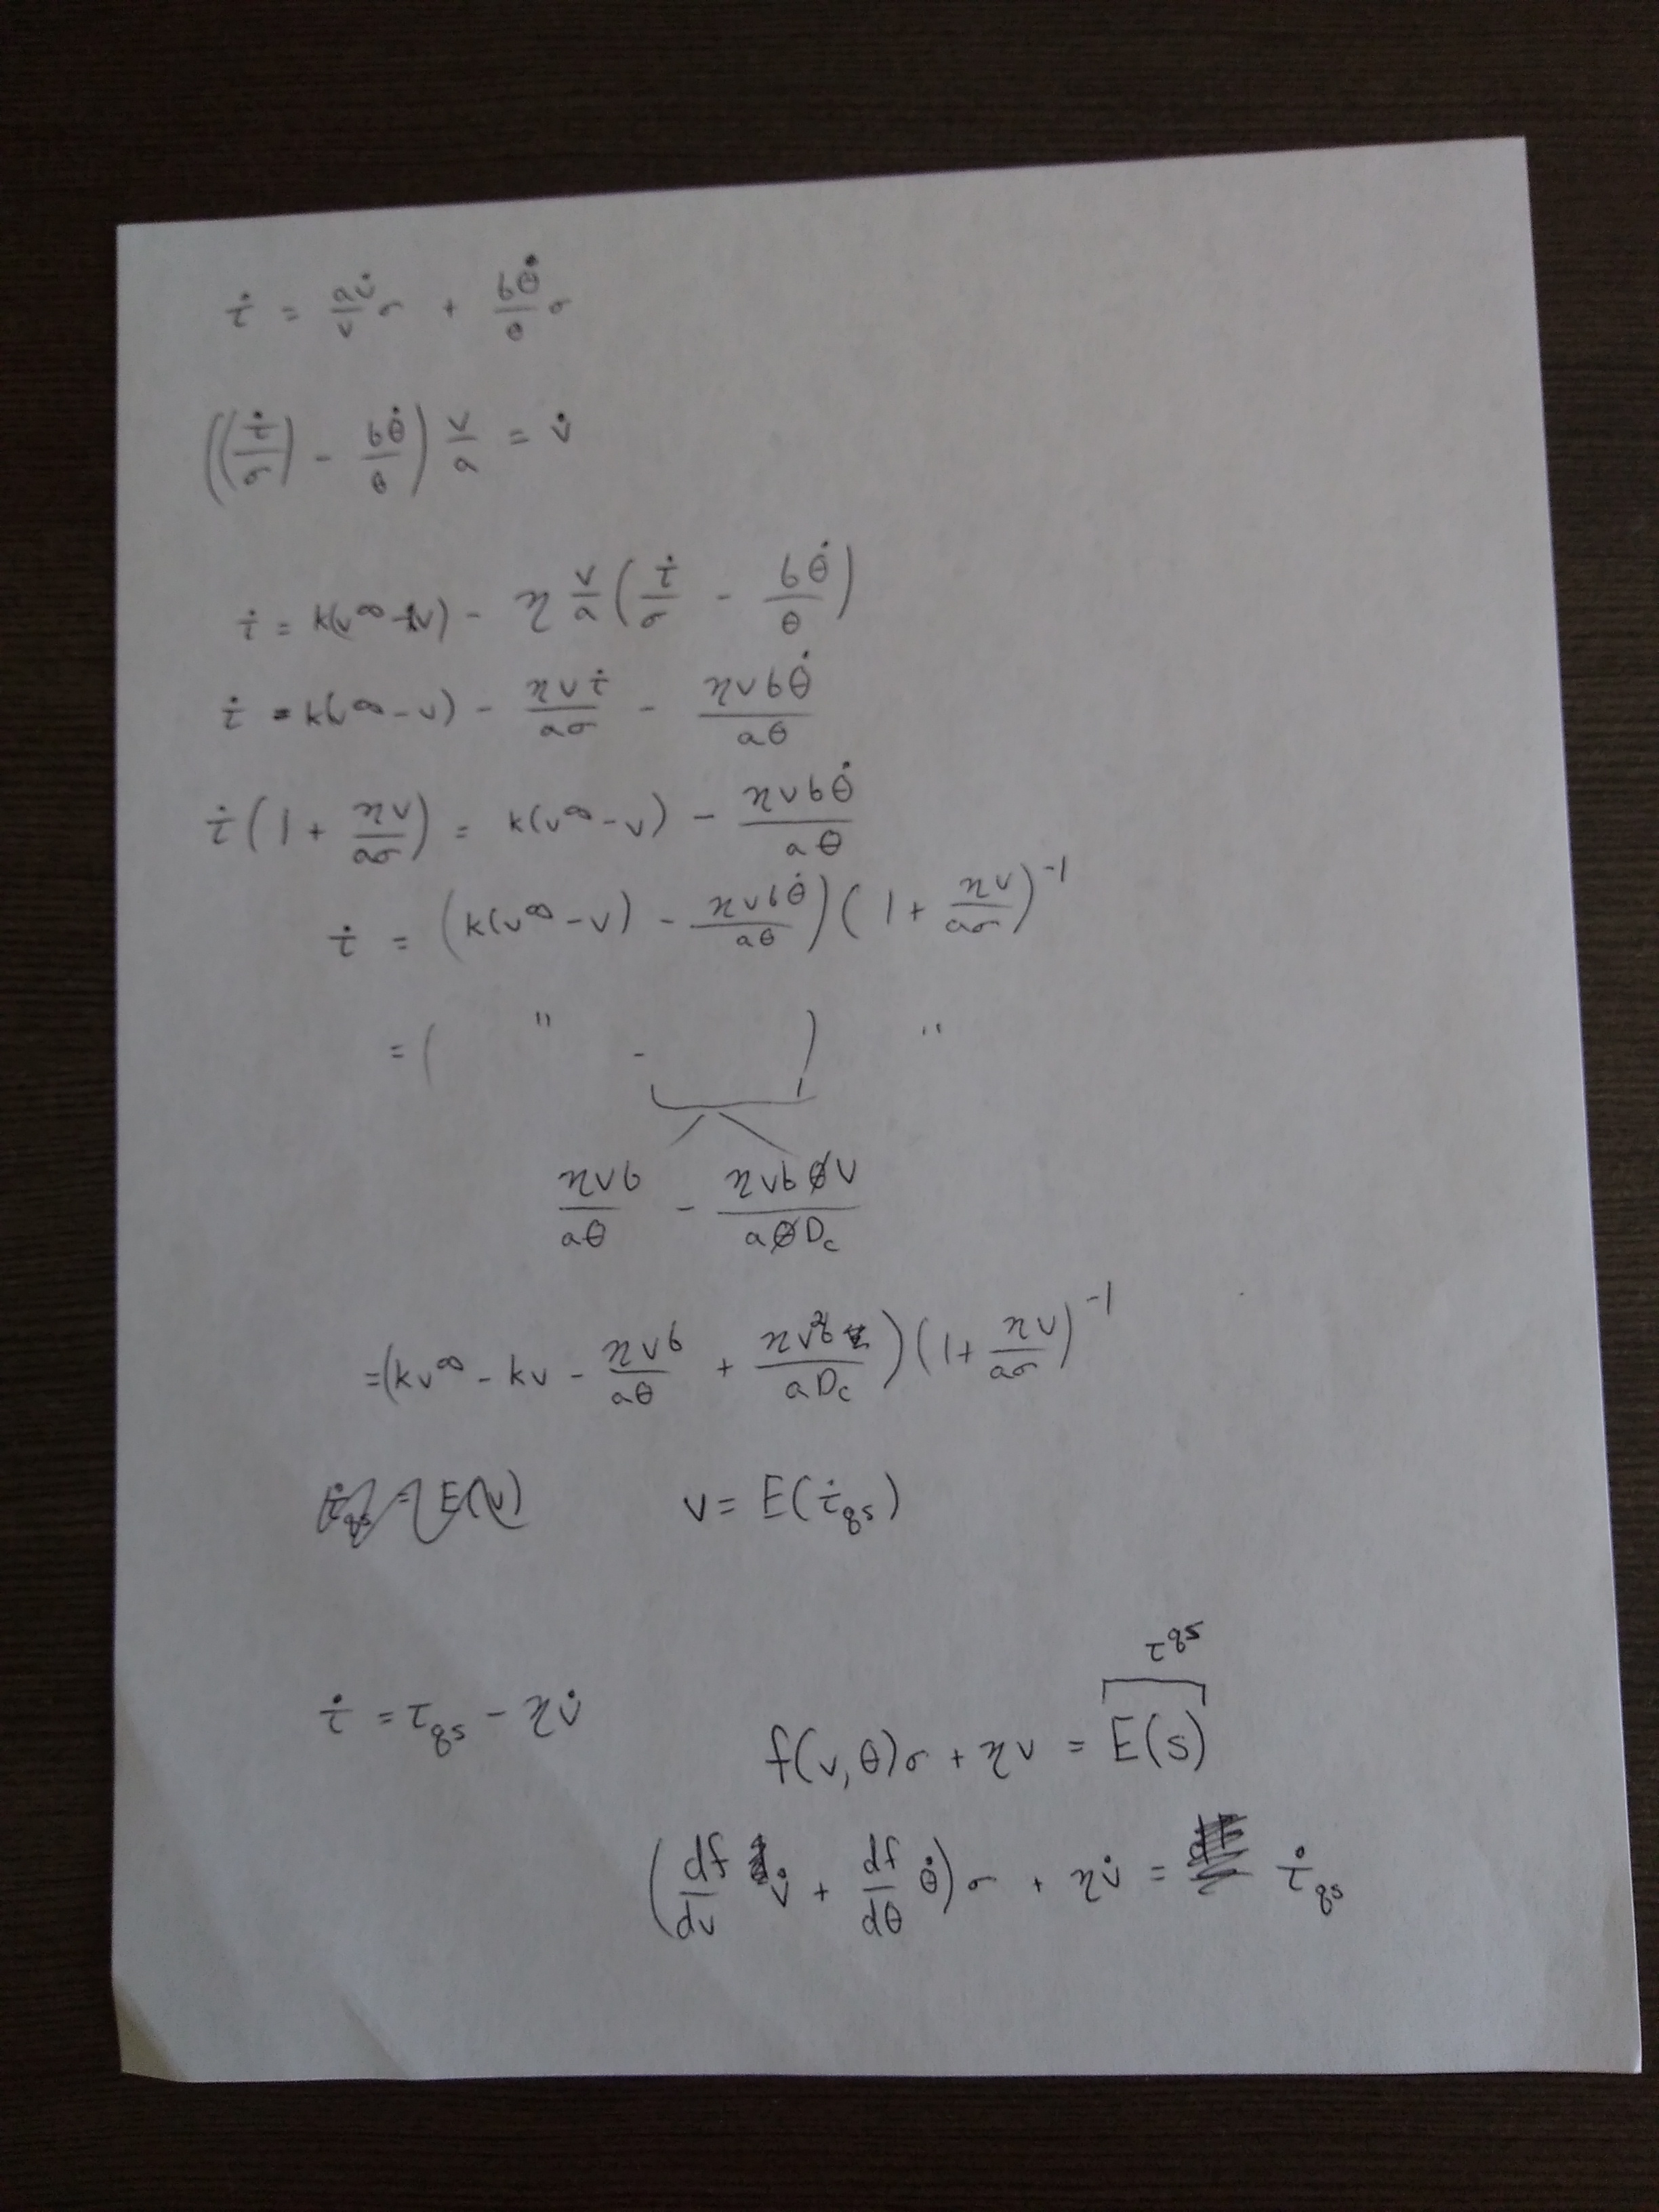 τ̇ = av̇/v σ + bθ̇/θ σ
((τ̇/σ) - bθ̇/θ) v/a = v̇
τ̇ = k(v^∞ - v) - η v/a (τ̇/σ - bθ̇/θ)
τ̇ = k(v^∞ - v) - ηvτ̇/aσ - ηvbθ̇/aθ
τ̇(1 + ηv/aσ) = k(v^∞ - v) - ηvbθ̇/aθ
τ̇ = (k(v^∞ - v) - ηvbθ̇/aθ)(1 + ηv/aσ)^-1
= ( " - ) "
ηvb/aθ - ηvbθv/aθD_c
=(kv^∞ - kv - ηvb/aθ + ηv²b/aD_c)(1 + ηv/aσ)^-1
τ̇_qs = E(v) v = E(τ̇_qs)
τ^qs
τ̇ = τ_qs - ηv̇ f(v,θ)σ + ηv = E(s)
(df/dv v̇ + df/dθ θ̇)σ + ηv̇ = τ̇_qs